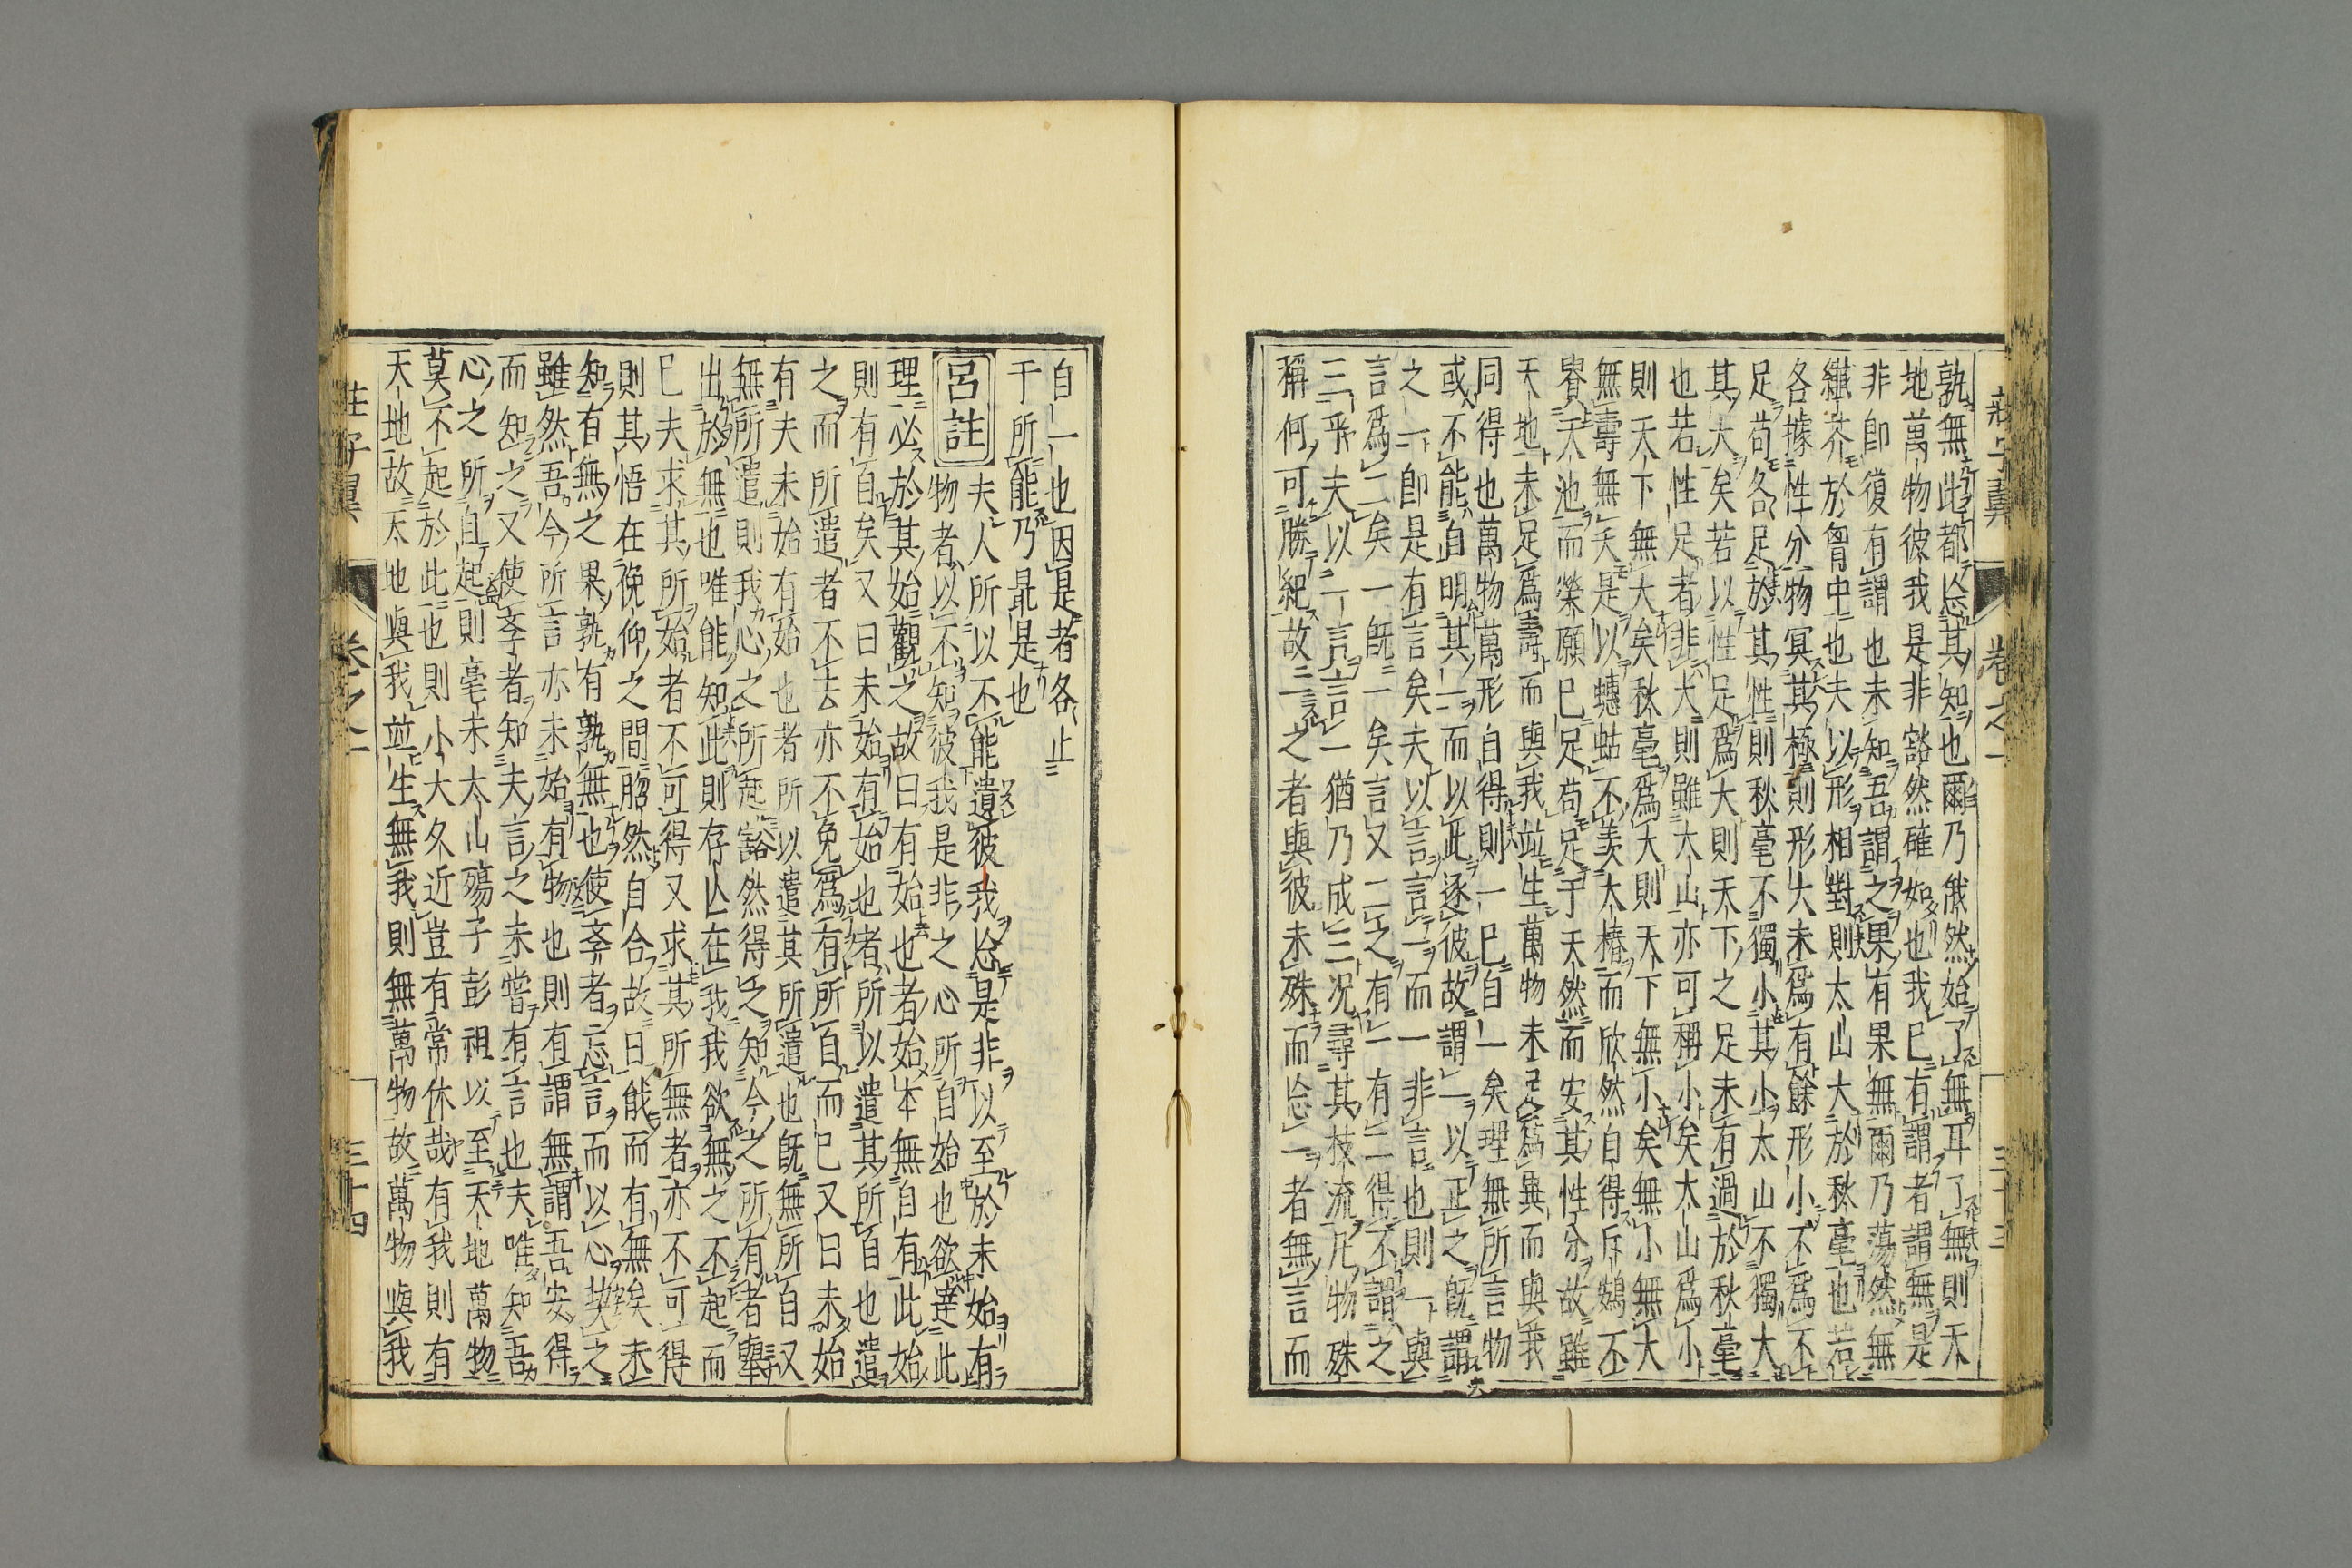 莊子翼 卷之一 三十三
孰無此都忘其知也爾乃俄然始了無耳了無則天
地萬物彼我是非豁然確如也我已有謂者謂無是
非即復有謂也未知吾謂之果有果無爾乃蕩然無
纖芥於胷中也夫以形相對則太山大於秋毫也若
各據性分物冥其極則形大未爲有餘形小不爲不
足苟各足於其性則秋毫不獨小其小太山不獨大
其大矣若以性足爲大則天下之足未有過於秋毫
也若性足者非大則雖大山亦可稱小矣太山爲小
則天下無大矣秋毫爲大則天下無小矣無小無大
無壽無夭是以蟪蛄不羨大椿而欣然自得斥鷃不
貴天池而榮願已足苟足于天然而安其性分故雖
天地未足爲壽而與我竝生萬物未足爲異而與我
同得也萬物萬形自得則一已自一矣理無所言物
或不能自明其一而以此逐彼故謂一以正之既謂
之一即是有言矣夫以言言一而一非言也則一與
言爲二矣一既一矣言又二之有一有二得不謂之
三乎夫以一言言一猶乃成三况尋其枝流凡物殊
稱何可勝紀故一之者與彼未殊而忘一者無言而
自一也因是者各止
于所能乃最是也
呂註 夫人所以不能遣彼我忘是非以至於未始有
物者以不知彼我是非之心所自始也欲達此
理必於其始觀之故曰有始也者始本無自有此始
則有自矣又曰未始有始也者所以遣其所自也遣
之而所遣者不去亦不免爲有所自而已又曰未始
有夫未始有始也者所以遣其所遣也既無所自又
無所遣則我心之所起豁然得之知今之所有者舉
出於無也唯能知此則存亾在我我欲無之不起而
已夫求其所始者不可得又求其所無者亦不可得
則其悟在俛仰之間脗然自合故曰俄而有無矣未
知有無之果孰有孰無也使斈者忘言而以心契之
雖然吾今所言亦未始有物也則有謂無謂吾安得
而知之又使斈者知夫言之未嘗有言也夫唯知吾
心之所自起則毫末太山殤子彭祖以至天地萬物
莫不起於此也則小大久近豈有常休哉有我則有
天地故天地與我竝生無我則無萬物故萬物與我
莊子翼 卷之一 三十四